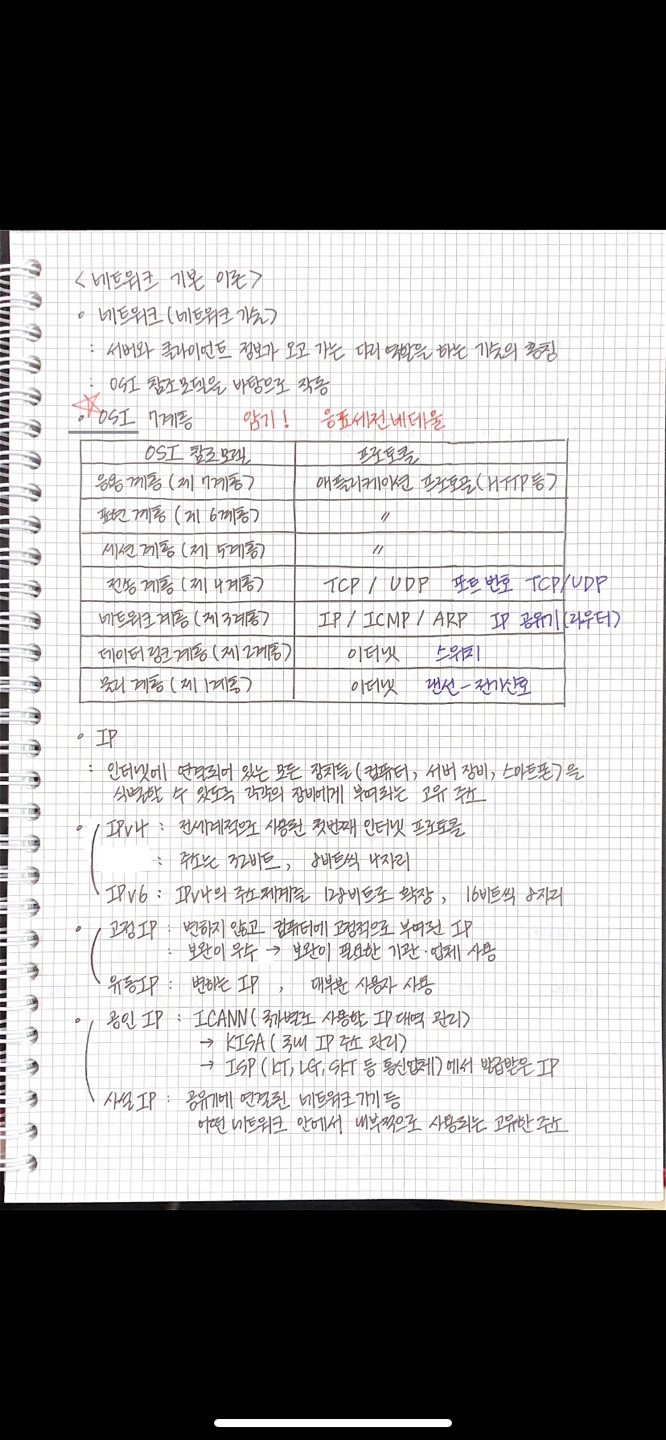 <네트워크 기본 이론>
◦ 네트워크(네트워크 기술)
: 서버와 클라이언트 정보가 오고 가는 다리 역할을 하는 기술의 총칭
: OSI 참조모델을 바탕으로 작동
☆ ◦ OSI 7계층 암기! 응표세전네데물
OSI 참조모델 프로토콜
응용 계층 (제 7계층) 애플리케이션 프로토콜(HTTP 등)
표현 계층 (제 6계층) 〃
세션 계층 (제 5계층) 〃
전송 계층 (제 4계층) TCP / UDP 포트 번호 TCP/UDP
네트워크 계층 (제3계층) IP / ICMP / ARP IP 공유기(라우터)
데이터 링크 계층 (제2계층) 이더넷 스위치
물리 계층 (제 1계층) 이더넷 랜선 - 전기신호
◦ IP
: 인터넷에 연결되어 있는 모든 장치들(컴퓨터, 서버 장비, 스마트폰)을
식별할 수 있도록 각각의 장비에게 부여되는 고유 주소
◦ IPv4 : 전세계적으로 사용된 첫번째 인터넷 프로토콜
: 주소는 32비트, 8비트씩 4자리
IPv6 : IPv4의 주소체계를 128비트로 확장, 16비트씩 8자리
◦ 고정 IP : 변하지 않고 컴퓨터에 고정적으로 부여된 IP
: 보안이 우수 → 보안이 필요한 기관·업체 사용
유동IP : 변하는 IP , 대부분 사용자 사용
◦ 공인 IP : ICANN(국가별로 사용할 IP 대역 관리)
→ KISA (국내 IP 주소 관리)
→ ISP (KT, LG, SKT 등 통신업체)에서 발급받은 IP
사설 IP : 공유기에 연결된 네트워크 기기 등
어떤 네트워크 안에서 내부적으로 사용되는 고유한 주소